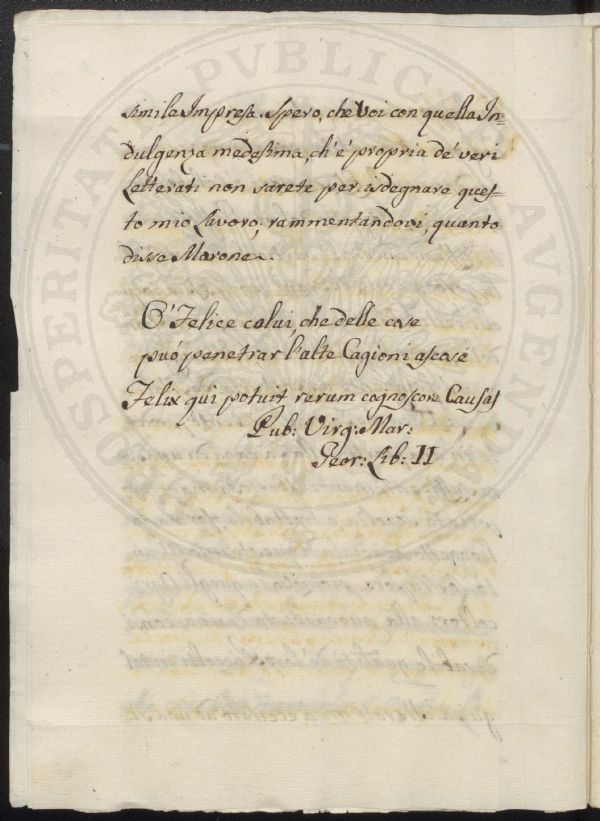 simile Impresa. Spero, che Voi con quella In=
dulgenza medesima, ch'é propria de' veri
Letterati non sarete per isdegnare ques=
to mio Lavoro; rammentandovi, quanto
disse Marone.
O' Felice colui, che delle cose
puó penetrar l'alte Cagioni ascose
Felix qui potuit rerum cognoscere Causas
Pub: Virg: Mar:
Geor: Lib: II